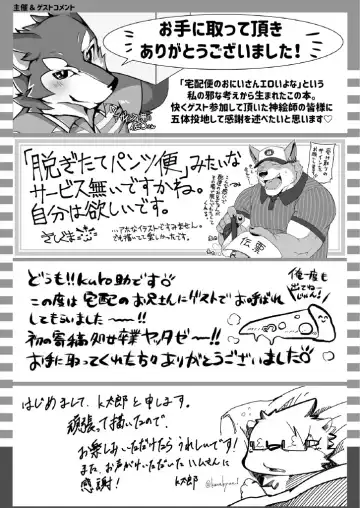 主催 & ゲストコメント
お手に取って頂き
ありがとうございました!
「宅配便のおにいさんエロいよな」という
私の邪な考えから生まれたこの本。
快くゲスト参加して頂いた神絵師の皆様に
五体投地して感謝を述べたいと思います♡
「脱ぎたてパンツ便」みたいな
サービス無いですかね。
自分は欲しいです。
…アホなイラストですみません。
でも描いてて楽しかったです。
伝票
どうも!!kuro助です
この度は宅配のお兄さんにゲストでお呼ばれ
してもらいました〜!!
初の寄稿処女卒業ヤッタゼ〜!!
お手に取ってくれたちなありがとうございました
俺一度も
出てねーじゃん!
はじめまして、K太郎と申します。
頑張って描いたので、
お楽しみいただけたらうれしいです!
また、お声がけいただいたハムさんに
感謝!
K太郎